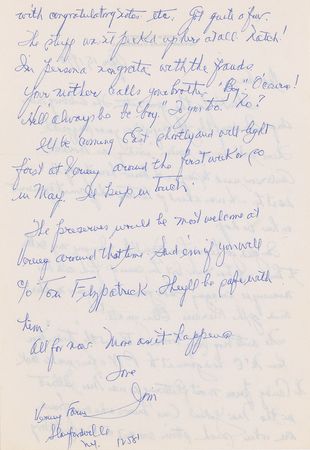 with congratulatory notes etc. Got quite a few.
The stuff wasn't picked up here at all. Natch!
I'm persona non grata with the frauds
Your mother calls your brother "Boy".
He'll always be "boy." To you too! No?
I'll be coming East shortly and will light
first at Verney around the first week or so
in May. I'll keep in touch.
The preserves would be most welcome at
Verney around that time. Send 'em if you will
c/o Tom Fitzpatrick. They'll be safe with
him.
All for now. More as it happens
Love
Jim
Verney Farm
Stanfordville
N.Y. 12581